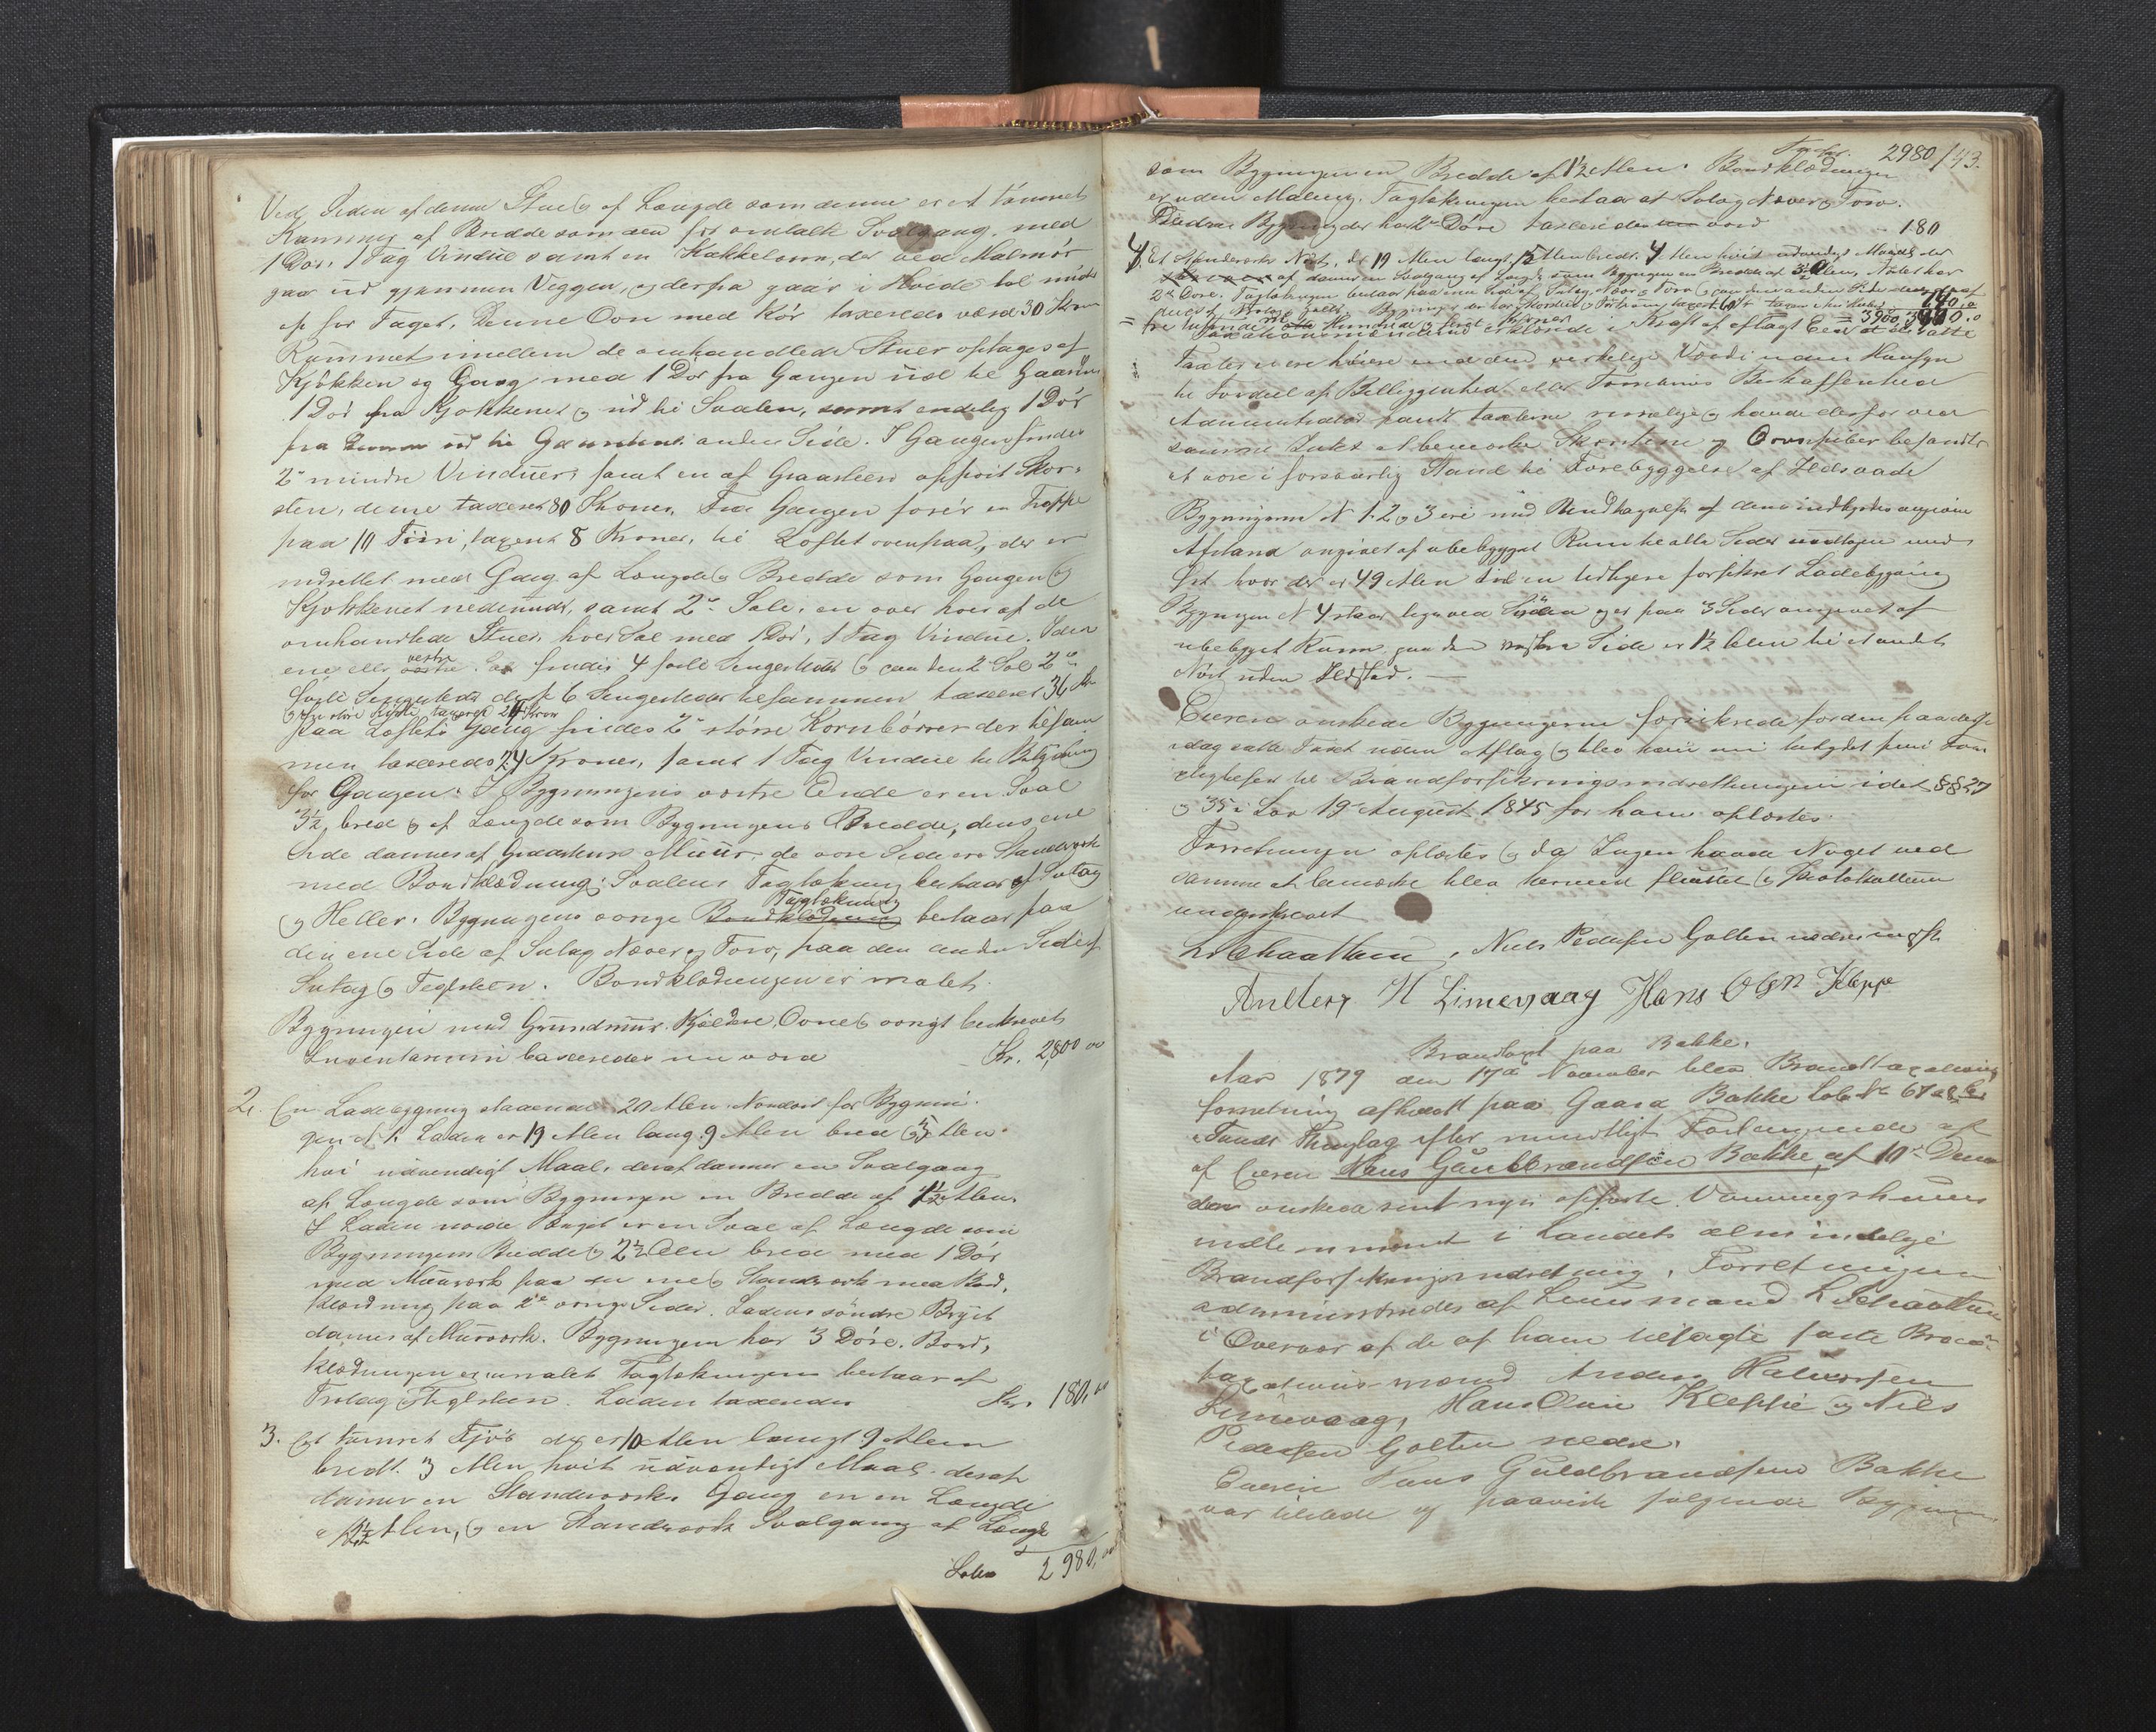 Ved Siden af denne Stue og af Længde som denne er et tømret
Kammer af Bredde som den før omtalte Svalgang, med
1 Dør, 1 Fag Vindue samt en Kakkelovn, der ved Malmrør
gaar ud gjennem Veggen, og derfra gaar i Høide til
op for Taget. Denne Ovn med Rør taxeredes værd 30 Kroner
Rummet imellem de omhandlede Stuer optages af
Kjøkken og Gang med 1 Dør fra Gangen ud til Gaarden
1 Dør fra Kjøkkenet og ud til Svalen, samt endelig 1 Dør
fra ud til Gaardens anden Side. I Gangen findes
2de mindre Vinduer, samt en af Graasteen opført Skor-
sten, denne taxeret 80 Kroner. Fra Gangen fører en Trappe
paa 10 Trin, taxeret 8 Kroner, til Loftet ovenpaa, der er
indrettet med Gang af Længde og Bredde som Gangen og
Kjøkkenet nedenunder, samt 2de Sale, en over hver af de
omhandlede Stuer, hver Sal med 1 Dør, 1 Fag Vindue. I den
ene eller vestre findes 4 faste Sengesteder og i den 2den Sal 2de
faste Sengesteder disse 6 Sengesteder tilsammen taxeret 36 Kr
taxeret 24 Kroner
paa Loftets Gang findes 2de større Kornbørrer der tilsam
men taxeredes 24 Kroner, samt 1 Fag Vindue til Belysning
for Gangen. I Bygningens vestre Ende er en Sval
3½ bred og af Længde som Bygningens Bredde, dens ene
Side dannes af Graasteens Muur, de øvre Sider er Standværk
med Bordklædning. Svalens Taglækning bestaar af Sutag
og Heller. Bygningens øvrige Bordklædning Taglækning bestaar paa
den ene Side af Sutag Næver og Torv, paa den anden Side af
Sutag og Teglsteen. Bordklædningen er malet.
Bygningen med Grundmuur, Kjælder, Ovne og øvrigt beskrevet
Inventarium taxeredes nu værd Kr. 2,800 00
2. En Ladebygning staaende 20 Alen Nordost for Bygnin-
gen No 1. Laden er 19 Alen lang, 9 Alen bred og 5 Alen
høi udvendigt Maal, deraf danner en Svalgang
af Længde som Bygningen en Bredde af 1½ Alen.
I Ladens nordre Ende er en Sval af Længde som
Bygningens Bredde og 2½ Alen bred med 1 Dør
med Muurværk paa den ene og Standværk med Bord,
klædning paa 2de øvrige Sider. Ladens søndre Bryst
dannes af Muurværk. Bygningen har 3 Døre. Bord,
klædningen er umalet Taglækningen bestaar af
Trolag Teglsteen. Laden taxeredes Kr. 180,00
3. Et tømret Fjøs der er 10 Alen langt 9 Alen
bredt 3 Alen høit udvendigt Maal, deraf
danner en Standværks Gang en en Længde
af 1½ Alen, og en Standværks Svalgang af Længde
Lateris 2 980,00
Transp. 2980 / 43.
som Bygningen en Bredde af 1½ Alen. Bordklædningen
er uden Maling. Taglækningen bestaar af Sutag Næver og Torv.
Denne Bygning der har 2de Døre taxeredes værd 180
4. Et Standværks Nøst, der 19 Alen langt, 12 Alen bredt, 4 Alen høit udvendigt Maal, der
af danner en Svalgang af Længde som Bygningen en Bredde af 3 Alen, Nøstet har
2de Døre. Taglækningen bestaar paa den ene Side af Sutag, Næver og Torv og paa den anden Side
= tre tusinde Hundrede og Kroner
Taxationsmændene erklærede i Kraft af aflagt Eed at de satte
Taxter ei ere høiere end den virkelige Værdi uden Hensyn
til Fordeel af Beliggenhed eller Tomtens Beskaffenhed
Administrator fandt Taxterne rimelige og havde derfor ved
samme Intet at bemærke. Skorstene og Ovnspiber befandtes
at være i forsvarlig Stand til Forebyggelse af Ildsvaade
Bygningerne No 1. 2 og 3 ere med Undtagelse af den indbyrdes angivne
Afstand omgivet af ubebygget Rum til alle Sider undtagen mod
Øst hvor der er 49 Alen til en tidligere forsikret Ladebygning
Bygningen No 4 staar lige ved Søen og er paa 3 Sider omgivet af
ubebygget Rum, paa den vestre Side er 1½ Alen til et andet
Nøst uden Ildsted. —
Eieren ønskede Bygningerne forsikrede for den paa disse
idag satte Taxt uden Aflag og blev han nu betydet sine For-
pligtelser til Brandforsikringsindretningen idet §§ 27
og 35 i Lov 19de August 1845 for ham oplæstes.
Forretningen oplæstes og da Ingen havde Noget ved
samme at bemærke blev dermed sluttet og Protokollen
underskrevet
L. Schaatthun, Niels Pedersen Golten nedre m. f. P.
Anders H Limevaag Hans Olsen Kleppe
Brandtaxt paa Bakke.
Aar 1879 den 17de November blev Brandtaxations
forretning afholdt paa Gaard Bakke Løbe No 67 a & b
i Sunds Thinglag efter mundtligt Forlangende af
af Eieren Hans Guldbrandsen Bakke, af 10de Dennes
der ønskede sine nys opførte Vaaningshuus
indlemmet i Landets almindelige
Brandforsikringsindretning. Forretningen
administreredes af Lensmand L Schaatthun
i Overvær af de af ham tilsagte faste Brand-
taxations-mænd Anders Halvorsen
Limevaag, Hans Olsen Kleppe og Niels
Pedersen Golten nedre.
Eieren Hans Guldbrandsen Bakke
var tilstede og paaviste følgende Bygnin.